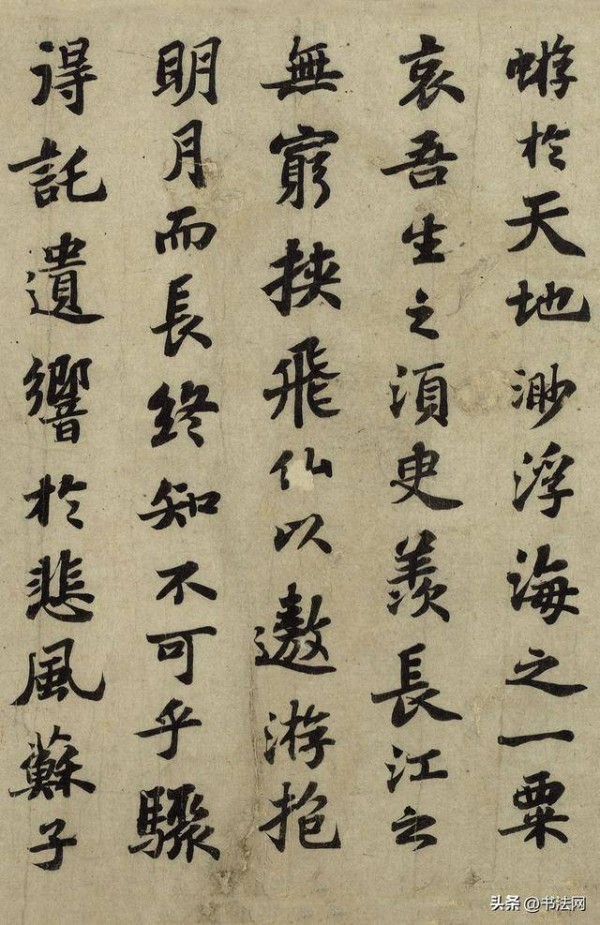 蝣於天地渺浮海之一粟
哀吾生之須臾羨長江之
無窮挾飛仙以遨游抱
明月而長終知不可乎驟
得託遺響於悲風蘇子
头条 @书法网